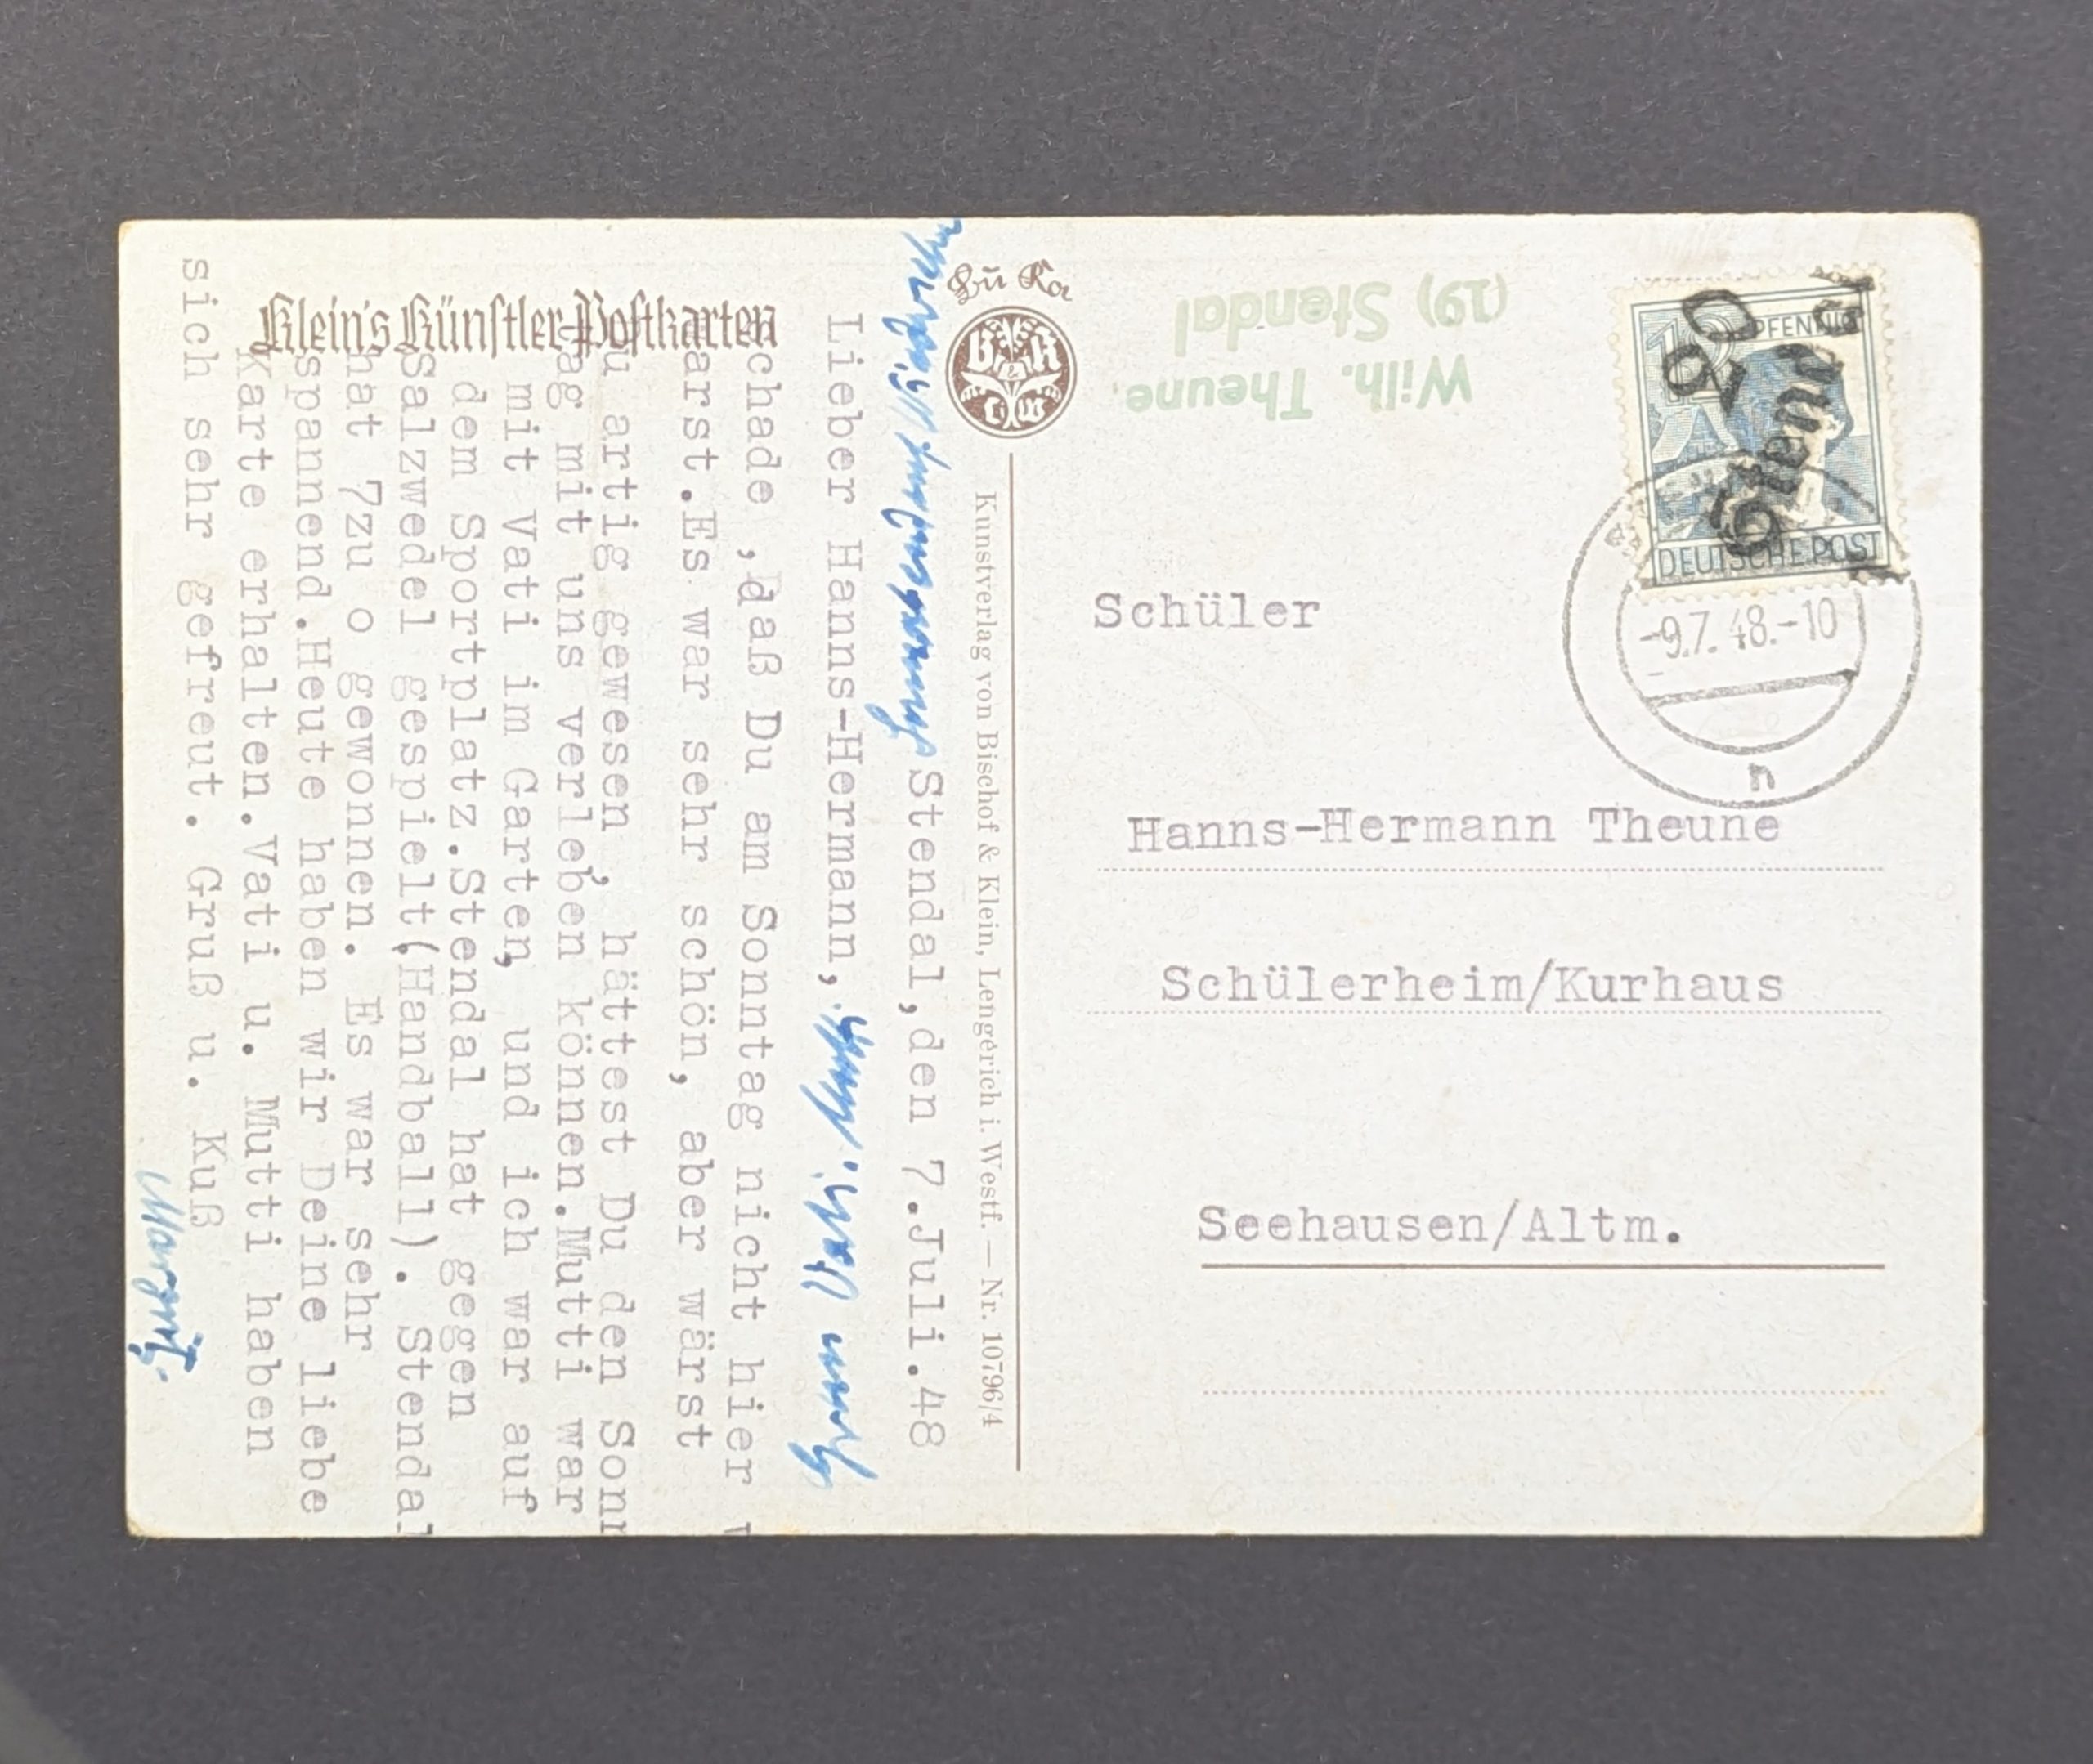 Klein's Künstler-Postkarten
Stendal,den 7.Juli.48
Sonnabend auf Wiedersehn
Lieber Hanns-Hermann,
Gruss Vati. Mutti.
chade ,daß Du am Sonntag nicht hier w
arst.Es war sehr schön, aber wärst
u artig gewesen , hättest Du den Sonn
ag mit uns verleben können.Mutti war
mit Vati im Garten, und ich war auf
dem Sportplatz.Stendal hat gegen
Salzwedel gespielt(Handball). Stendal
hat 7zu o gewonnen. Es war sehr
spannend.Heute haben wir Deine liebe
Karte erhalten.Vati u. Mutti haben
sich sehr gefreut. Gruß u. Kuß
Bü Ka
B & K
L i W
Kunstverlag von Bischof & Klein, Lengerich i. Westf. — Nr. 10796/4
Wilh. Theune,
(19) Stendal
12 PFENNIG
Stendal
DEUTSCHE POST
-9.7.48.-10
n
Schüler
Hanns-Hermann Theune
Schülerheim/Kurhaus
Seehausen/Altm.